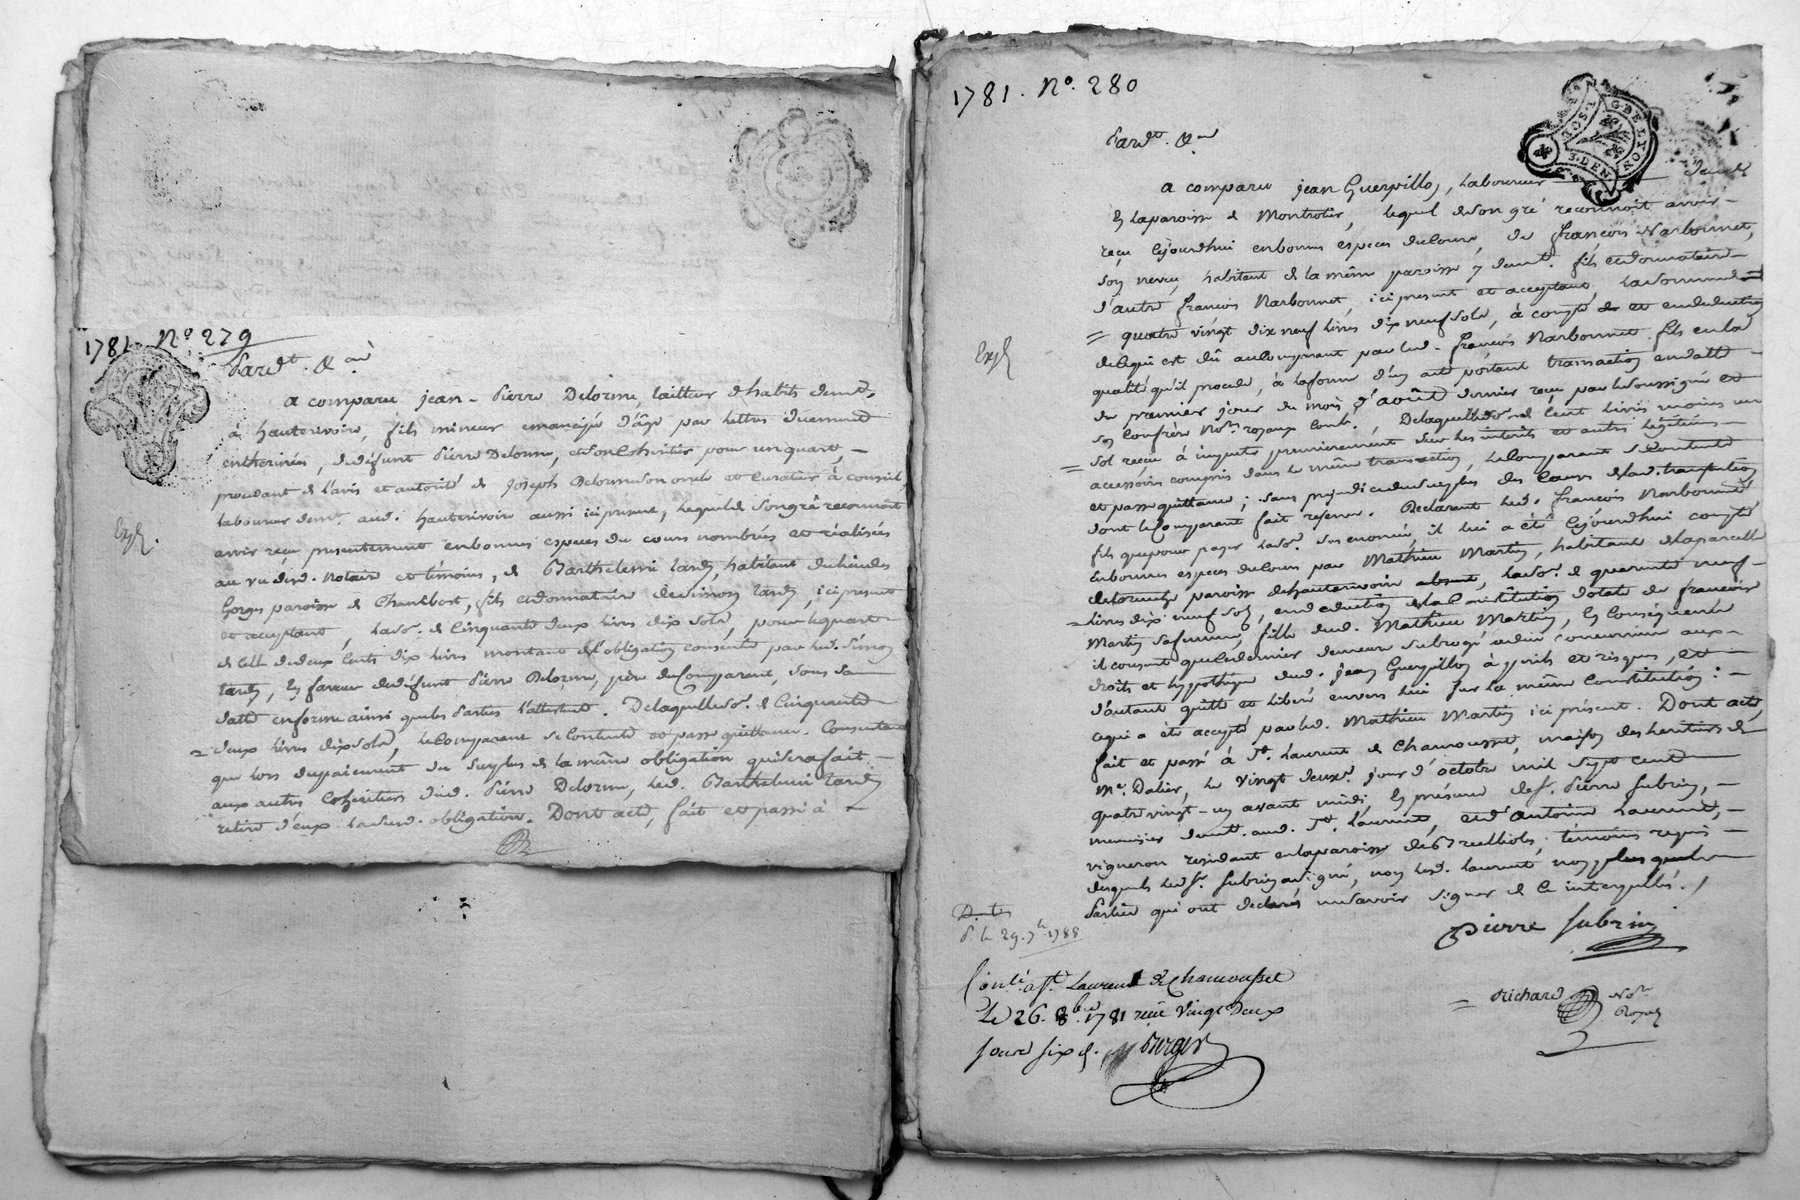 1781. N.º 279
Pard.t &.a
a comparu jean-Pierre Delorme, tailleur d'habits demt.
à hauterivoire, fils mineur emancipé d'âge par lettres duement
entherinées, de défunt Pierre Delorme, et son cohéritier pour un quart, -
procedant de l'avis et autorité de Joseph Delorme son oncle et curateur à conseil
laboureur demt. aud. hauterivoire aussi ici présent, lequel de son gré reconnoit
avoir reçu présentement en bonnes especes du cours nombrées et réalisées
au vu dud. Notaire et témoins, de Barthelemi tardy, habitant du lieu des
Gorges paroisse de Chambost, fils et donnataire de simon tardy, ici présent
et acceptant, la so. de Cinquante deux livres dix sols, pour le quart
de celle de deux cents dix livres montant de l'obligation consentie par led. Simon
tardy, en faveur de défunt Pierre Delorme, père du Comparant, sous sa
datte en forme ainsi que les Parties l'attestent. De laquelle so. de Cinquante
= deux livres dix sols, le Comparant se Contente et passe quittance. Consentant
que lors du paiement du surplus de la même obligation qui sera fait -
aux autres Cohéritiers dud. Pierre Delorme, led. Barthelemi tardy
retire d'eux la susd. obligation. Dont acte, fait et passé à
Exp.
1781. N.º 280
Pard.t &.a
a comparu jean Guerpillon, Laboureur demt.
en la paroisse de Montrotier, lequel de son gré reconnoit avoir -
reçu cejourdhui en bonnes especes du cours, de françois Narbonnet,
son neveu, habitant de la même paroisse y demt. fils et donnataire -
d'autre françois Narbonnet, ici présent et acceptant, la somme de =
= quatre vingt dix neuf livres dix neuf sols, à compte et en deduction
de ce qui est dû au comparant par led. françois Narbonnet fils en la
qualité qu'il procede, à la forme d'un acte portant transaction en datte -
du premier jour du mois d'août dernier reçu par le soussigné et
son Confrère No.res royaux Comb. De laquelle so. de Cent livres moins un
= sol reçue à imputer premierement sur les interêts et autres légitimes -
accessoires compris dans la même transaction, le Comparant se Contente
et passe quittance; sans préjudice du surplus des Causes de lad. transaction
dont le Comparant fait réserve. Declarant led. françois Narbonnet
fils que pour payer la so. sus énoncée, il lui a été cejourdhui compté
en bonnes especes du cours par Mathieu Martin, habitant de la parcelle
de paroisse de hauterivoire absent, la so. de quarante neuf -
= livres dix neuf sols, en deduction de la Constitution dotale de françoise
Martin sa femme, fille dud. Mathieu Martin, En Conséquence
il consent que ce dernier demeure subrogé à due concurrence aux -
droits et hypothèque dud. jean Guerpillon à périls et risques, et -
d'autant quitte et libéré envers lui sur la même Constitution: -
ce qui a été accepté par led. Mathieu Martin ici présent. Dont acte,
fait et passé à St. Laurent de Chamousset, maison des heritiers de
Me. Dalier, le vingt deuxe. jour d'octobre mil sept cent
quatre vingt-un avant midi, En présence de sr. Pierre Subrin, -
menuisier demt. aud. St. Laurent, et d'antoine Laurent, -
vigneron résidant en la paroisse de Brullioles, témoins requis -
desquels led. sr. Subrin a signé, non led. Laurent non plus que les
Parties qui ont declarés ne savoir signer de ce interpellés. /
Exp.
Pierre Subrin
= Richard No.re
Royal
P. le 29. 7.bre 1788
Contlé. à St. Laurent de Chamousset
le 26. 8.bre 1781 reçu Vingt Deux
sous six d. Berger
G. DE LYON
3. DEN